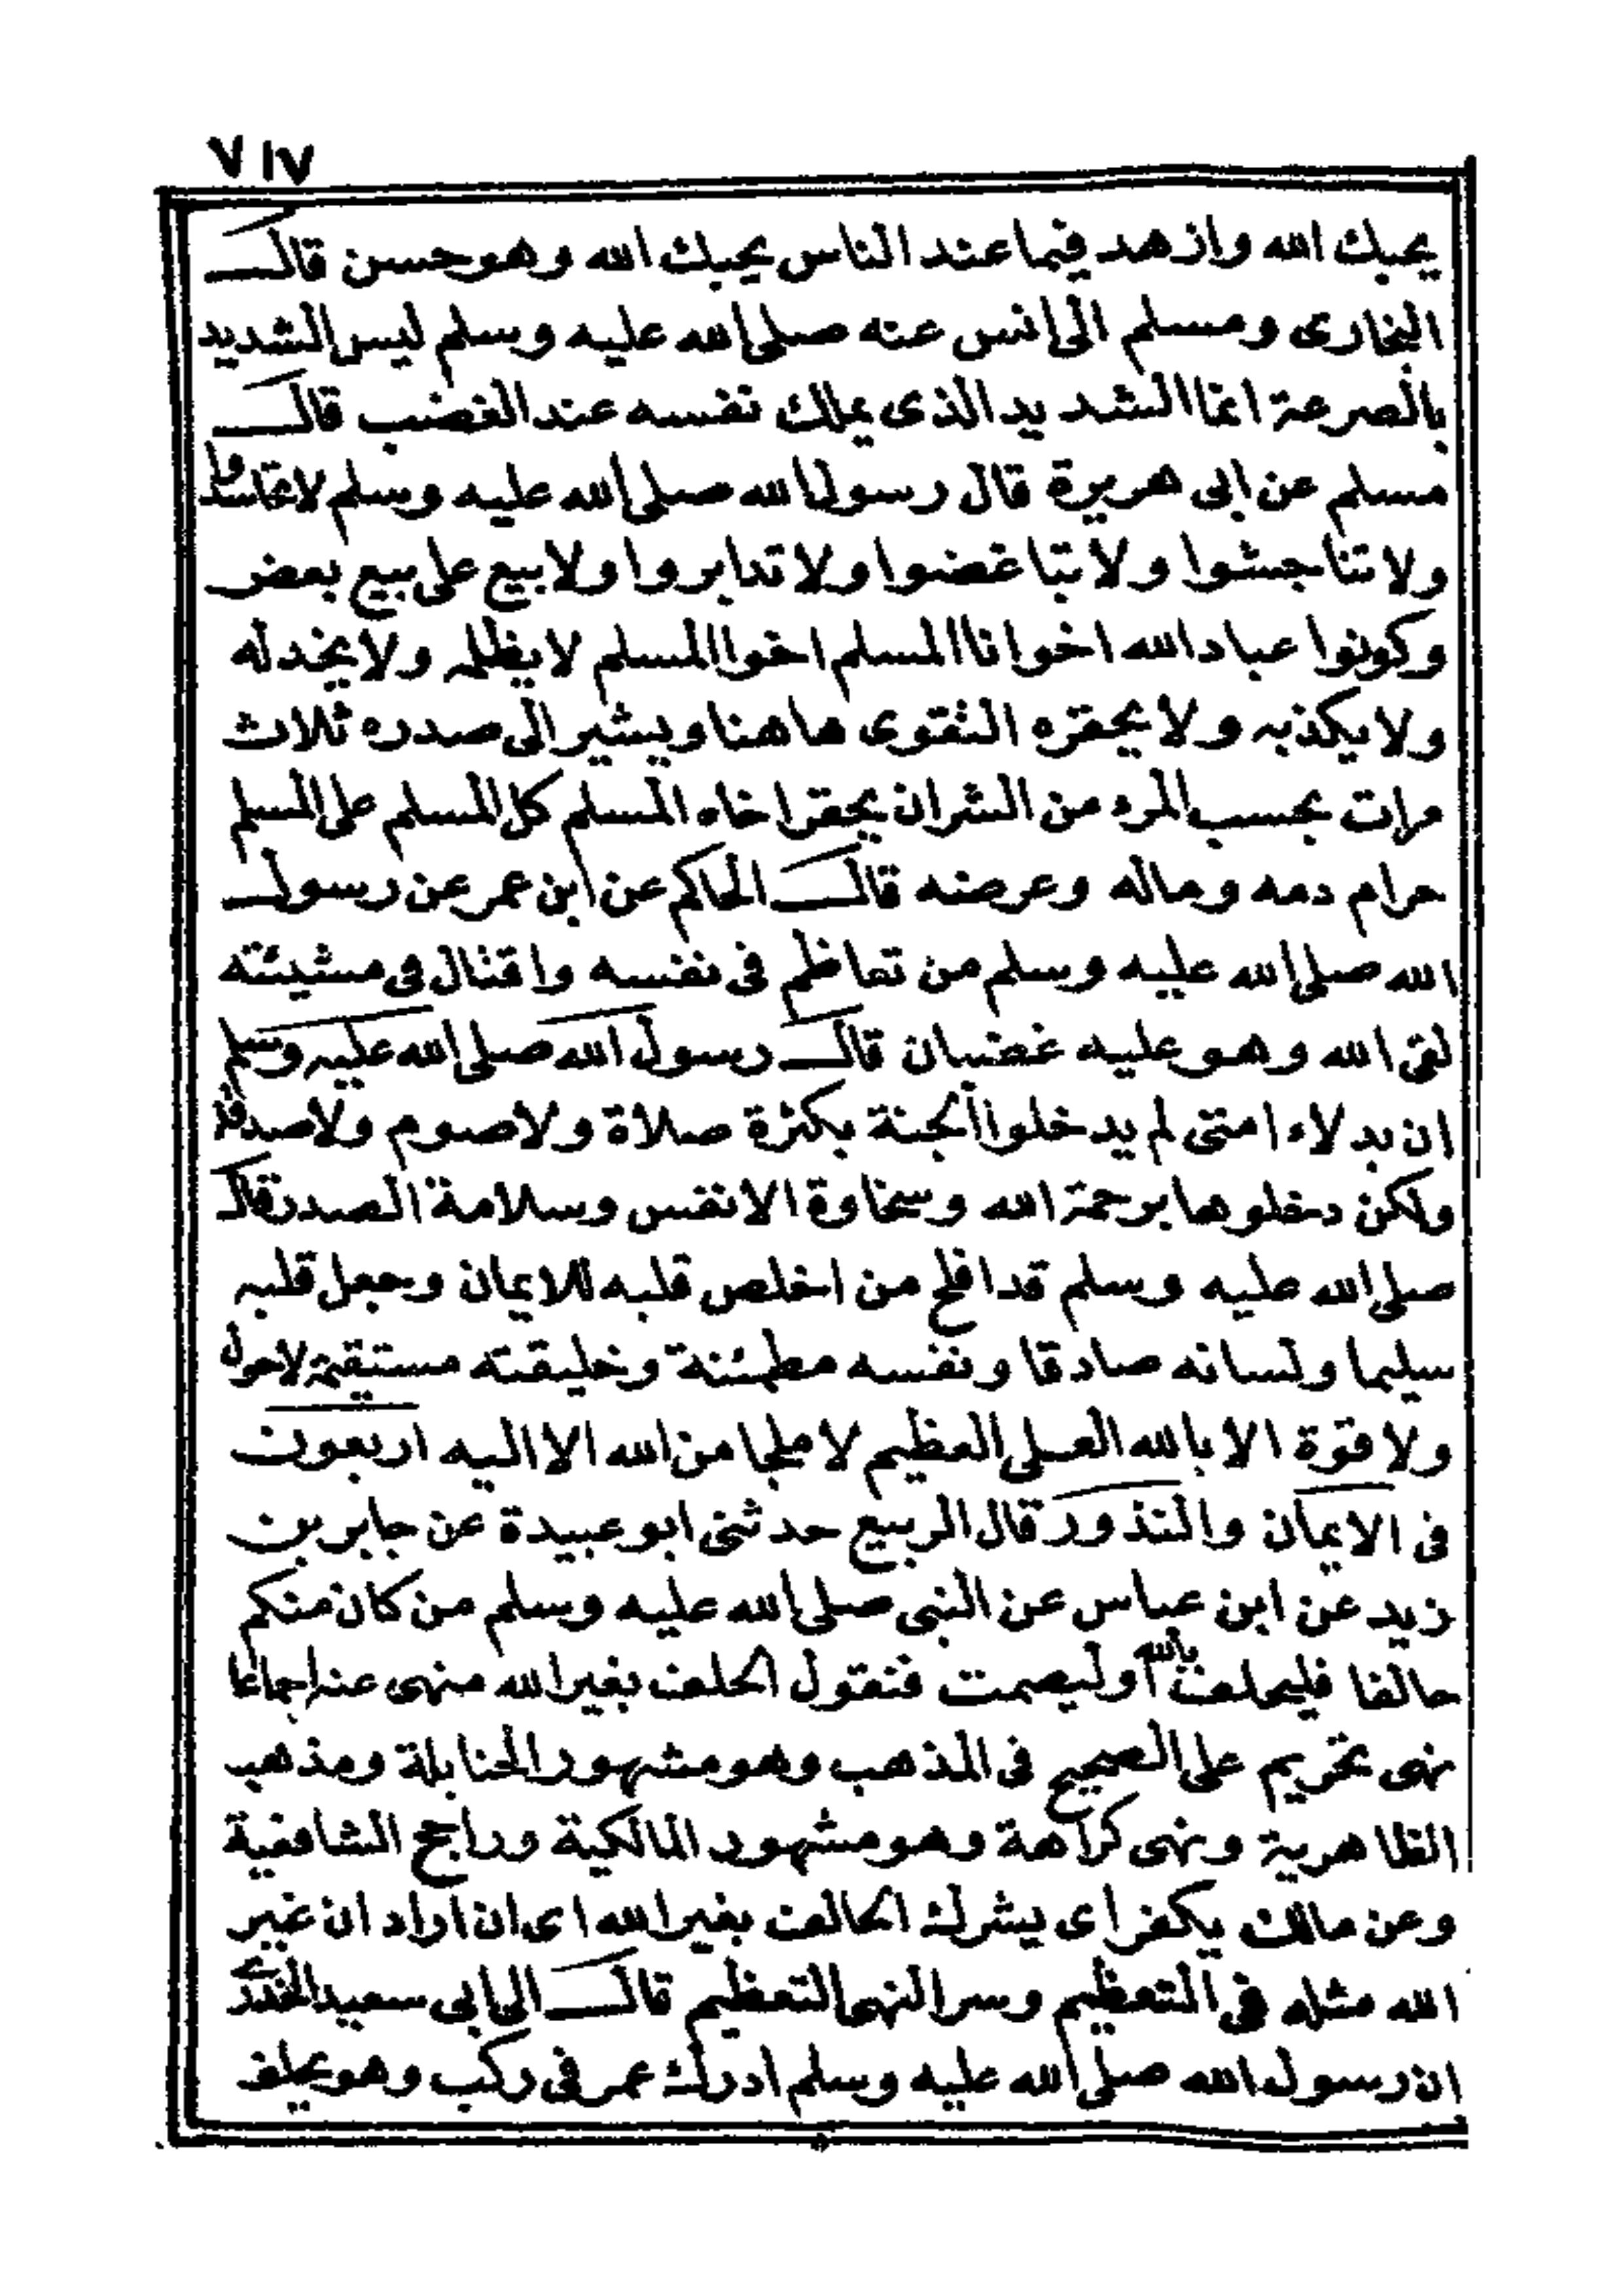 ٧١٧
يحبك الله وازهد فيما عند الناس يحبك الله وهو حسن قال
البخارى ومسلم الى انس عنه صلى الله عليه وسلم ليس الشديد
بالصرعة انما الشديد الذى يملك نفسه عند الغضب قال
مسلم عن ابى هريرة قال رسول الله صلى الله عليه وسلم لا تحاسدوا
ولا تناجشوا ولا تباغضوا ولا تدابروا ولا بيع على بيع بعض
وكونوا عباد الله اخوانا المسلم اخوا المسلم لا يظلمه ولا يخذله
ولا يكذبه ولا يحقره التقوى هاهنا ويشير الى صدره ثلاث
مرات بحسب المرء من الشر ان يحقر اخاه المسلم كل المسلم على المسلم
حرام دمه وماله وعرضه قال الحاكم عن ابن عمر عن رسول
الله صلى الله عليه وسلم من تعاظم فى نفسه واقتال فى مشيئته
لقى الله وهو عليه غضبان قال رسول الله صلى الله عليه وسلم
ان بدلاء امتى لم يدخلوا الجنة بكثرة صلاة ولا صوم ولا صدقة
ولكن دخلوها برحمة الله وسخاوة الانفس وسلامة الصدر قال
صلى الله عليه وسلم قد افلح من اخلص قلبه للايمان وجعل قلبه
سليما ولسانه صادقا ونفسه مطمئنة وخليقته مستقيمة لا حول
ولا قوة الا بالله العلى العظيم لا ملجا من الله الا اليه اربعون
فى الايمان والنذور قال الربيع حدثنى ابو عبيدة عن جابر بن
زيد عن ابن عباس عن النبى صلى الله عليه وسلم من كان منكم
حالفا فليحلف بالله او ليصمت فنقول الحلف بغير الله منهى عنه اجماعا
نهى تحريم على الصحيح فى المذهب وهو مشهور الحنابلة ومذهب
الظاهرية ونهى كراهة وهو مشهور المالكية وراجح الشافعية
وعن مالك يكفر اى يشرك الحالف بغير الله اى ان اراد ان غير
الله مثله فى التعظيم وسر النهى التعظيم قال الى ابى سعيد الخدرى
ان رسول الله صلى الله عليه وسلم ادرك عمر فى ركب وهو يحلف